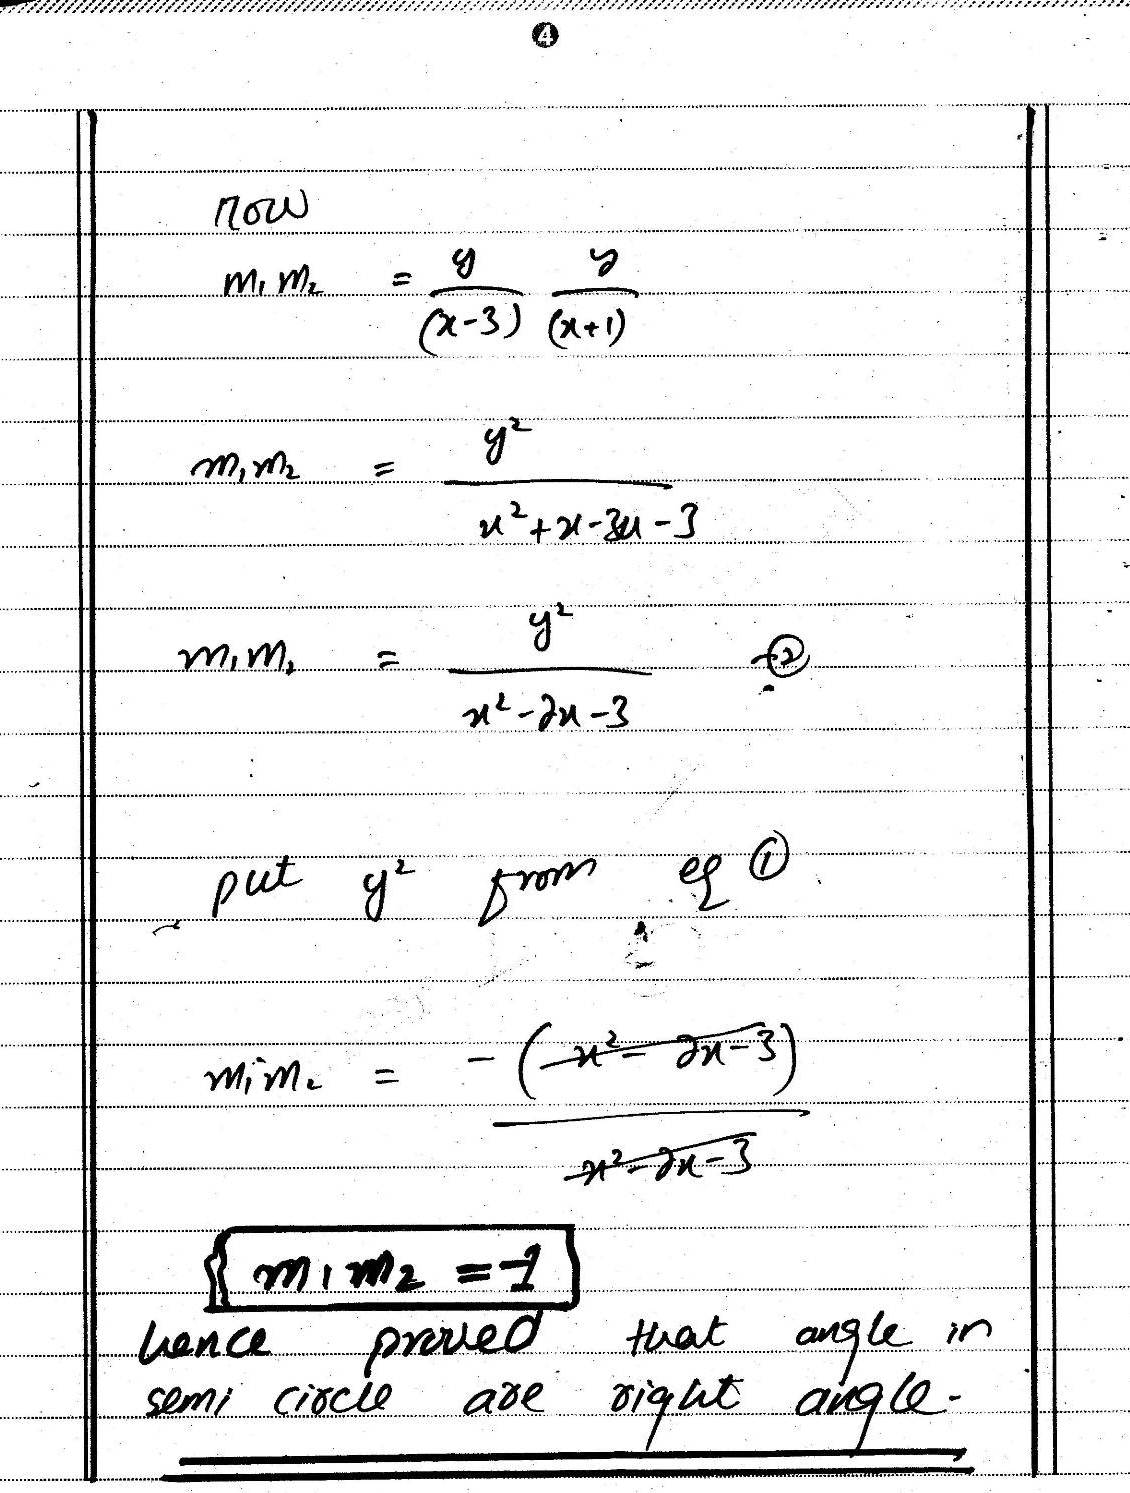 4
now
m₁ m₂ = y/(x-3) y/(x+1)
m₁m₂ = y²/(x²+x-3x-3)
m₁m₁ = y²/(x²-2x-3) -②
put y² from eq ①
m₁m₂ = -(x²-2x-3)/(x²-2x-3)
m₁m₂ = -1
hence proved that angle in
semi circle are right angle.